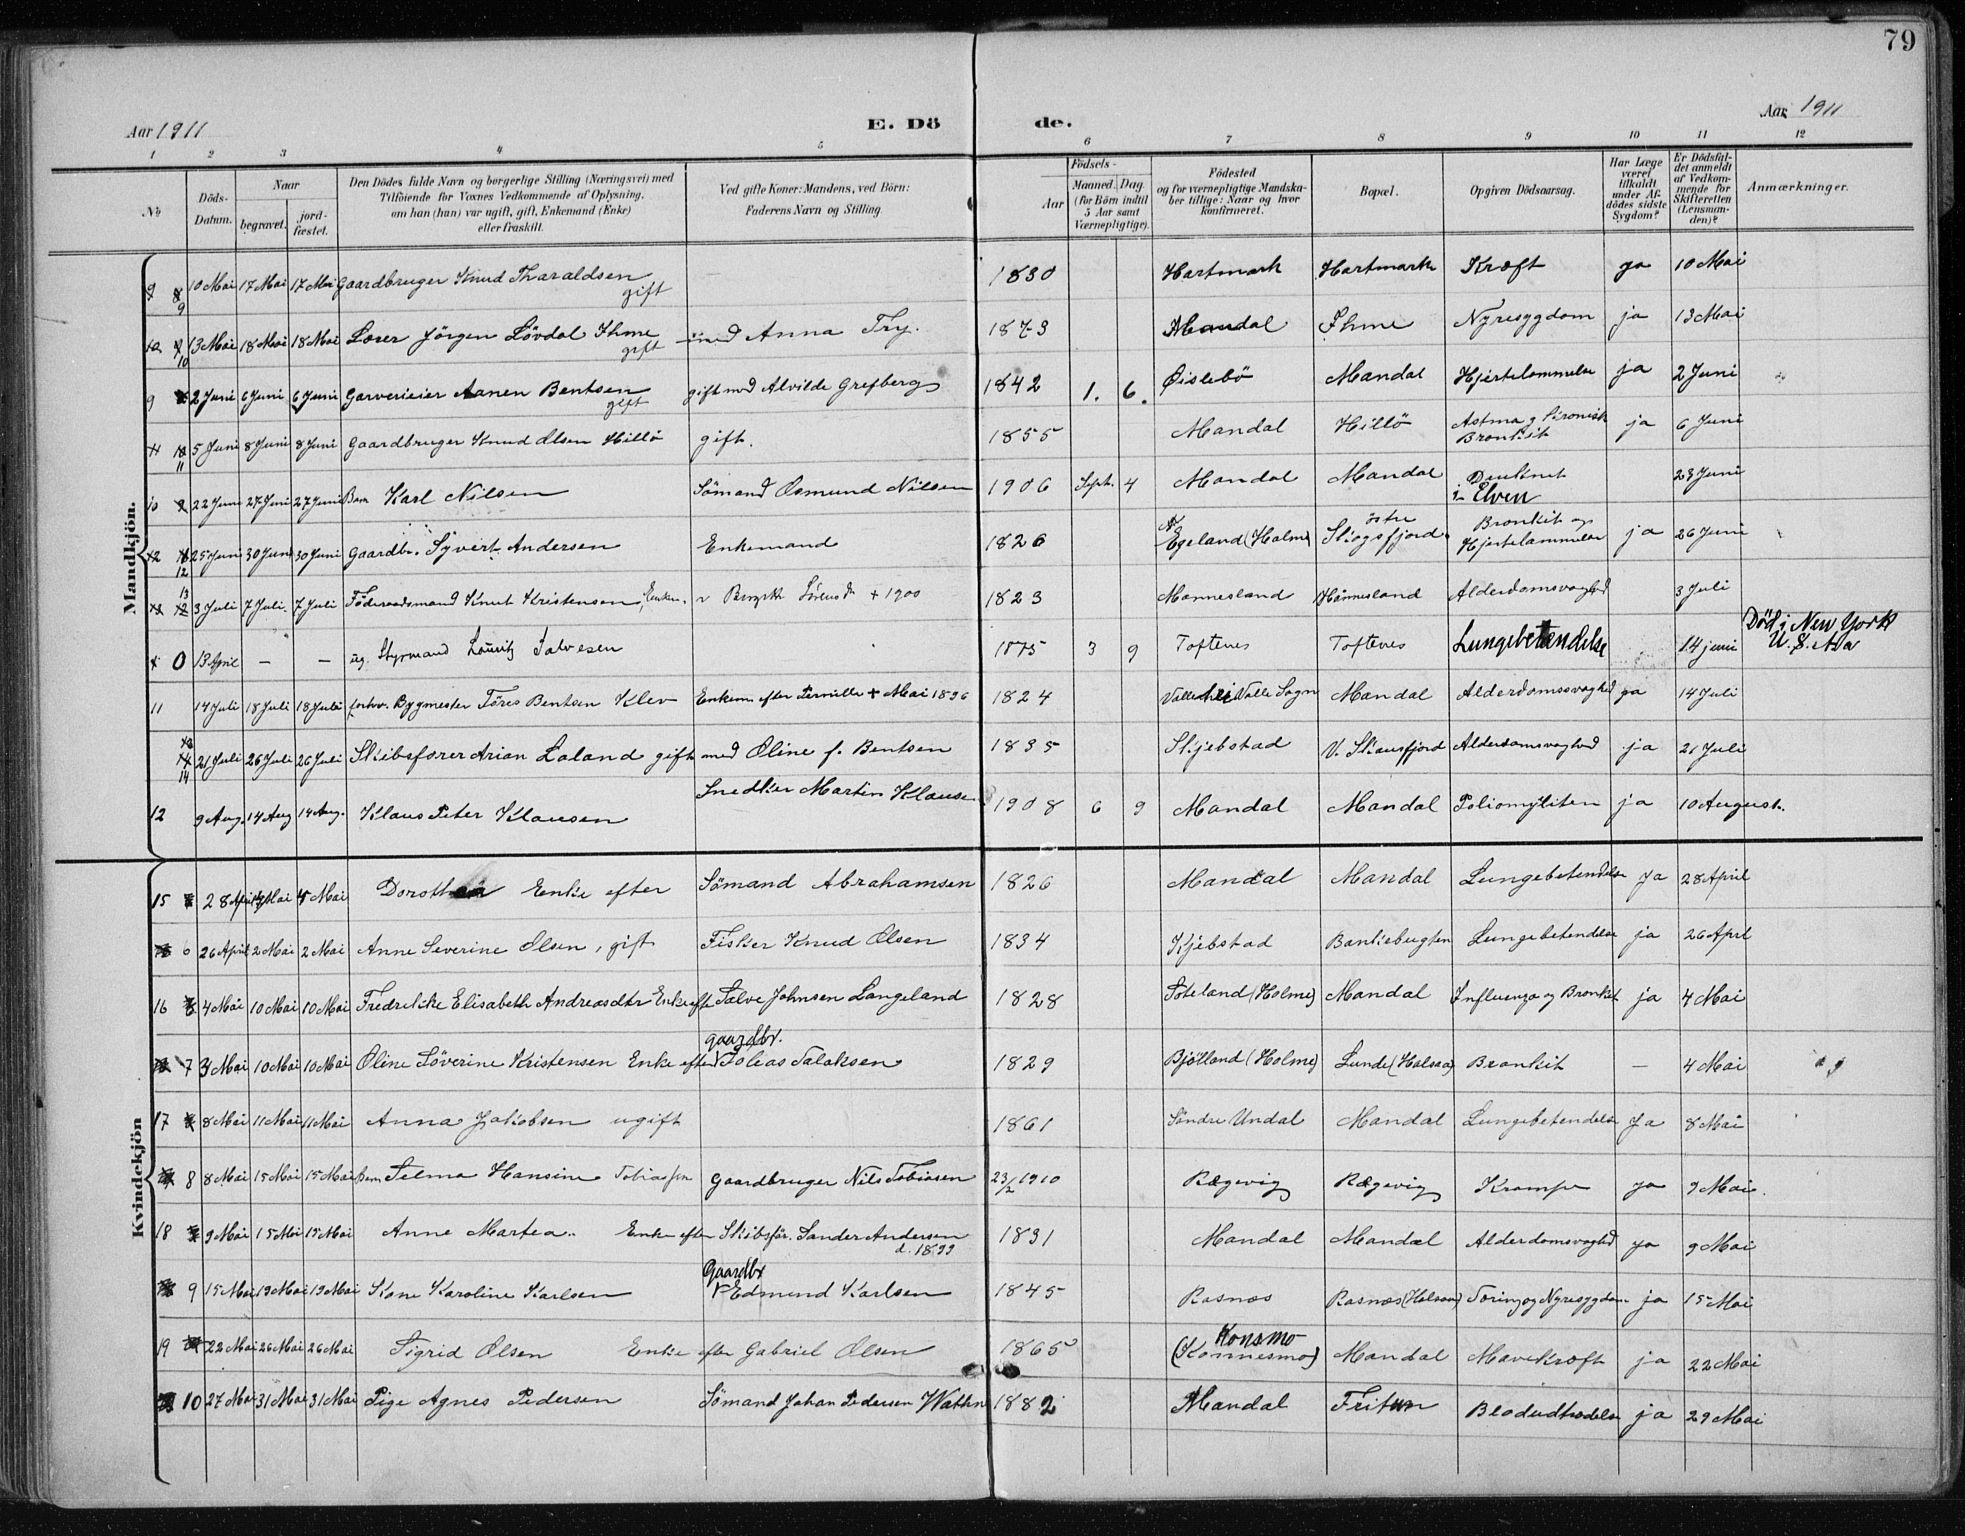 79
Aar 1911 E. Dö de. Aar 1911
1 2 3 4 5 6 7 8 9 10 11 12
No
Döds-Datum.
Naar
begravet.
jord-fæstet.
Den Dödes fulde Navn og borgerlige Stilling (Næringsvei) med
Tilföiende for Voxnes Vedkommende af Oplysning,
om han (hun) var ugift, gift, Enkemand (Enke)
eller fraskilt.
Ved gifte Koner: Mandens, ved Börn:
Faderens Navn og Stilling.
Födsels-
Aar
Maaned. Dag.
(for Börn indtil
5 Aar samt
Værnepligtige).
Födested
og for værnepligtige Mandska-
ber tillige: Naar og hvor
konfirmeret.
Bopæl.
Opgiven Dödsaarsag.
Har Læge
været
tilkaldt
under Af-
dödes sidste
Sygdom?
Er Dödsfal-
det anmeldt
af Vedkom-
mende for
Skifteretten
(Lensman-
den)?
Anmærkninger.
Mandkjön.
9 10 Mai 17 Mai 17 Mai Gaardbruger Knud Tharaldsen gift 1830 Hartmark Hartmark Kræft ja 10 Mai
10 13 Mai 18 Mai 18 Mai Lærer Jörgen Lövdal Ihme gift med Anna Try. 1873 Mandal Ihme Nyresygdom ja 13 Mai
9 2 Juni 6 Juni 6 Juni Garverieier Aanen Bentsen gift gift med Alvilde Grefberg 1842 1. 6. Öislebö Mandal Hjertelammelse ja 2 Juni
11 5 Juni 8 Juni 8 Juni Gaardbruger Knud Olsen Hillö gift. 1855 Mandal Hillö Astma og kronisk Bronkit ja 6 Juni
10 22 Juni 27 Juni 27 Juni Barn Karl Nilsen Sömand Osmund Nilsen 1906 Sept. 4 Mandal Mandal Druknet i Elven 23 Juni
12 25 Juni 30 Juni 30 Juni Gaardbr. Syvert Andersen Enkemand 1826 Egeland (Holme) östre Skogsfjord Bronkit og Hjertelammelse ja 26 Juni
13 3 Juli 7 Juli 7 Juli Föderaadsmand Knut Kristensen, Enkem. + 1900 1823 Mannesland Mannesland Alderdomsvaghed 3 Juli
0 13 April — — ug. Styrmand Lauritz Salvesen 1875 3 9 Toftenes Toftenes Lungebetændelse 14 juni Död i New York U. S. A
11 14 Juli 18 Juli 18 Juli forhv. Bygmester Töres Bentsen Klev Enkem. efter Pernille + Mai 1896 1824 Valle i Valle Sogn Mandal Alderdomssvaghed ja 14 Juli
14 21 Juli 26 Juli 26 Juli Skibsförer Arian Laland gift med Oline f. Bentsen 1835 Skjebstad V. Skausfjord Alderdomsvaghed ja 21 Juli
12 9 Aug. 14 Aug 14 Aug. Klaus Peter Klausen Snedker Martin Klausen 1908 6 9 Mandal Mandal Poliomyliten ja 10 August.
Kvindekjön
15 28 April 4 Mai 4 Mai Dorothea Enke efter Sömand Abrahamsen 1826 Mandal Mandal Lungebetendelse ja 28 April
6 26 April 2 Mai 2 Mai Anne Severine Olsen, gift Fisker Knud Olsen 1834 Kjebstad Bankebugten Lungebetendelse ja 26 April
16 4 Mai 10 Mai 10 Mai Fredrikke Elisabeth Andreasdtr Enke eft. Salve Johnsen Langeland 1828 Söteland (Holme) Mandal Influenza og Bronkit ja 4 Mai
7 3 Mai 10 Mai 10 Mai Oline Söverine Kristensen Enke efter gaardbr. Tobias Salaksen 1829 Bjölland (Holme) Lunde (Halsaa) Bronkit — 4 Mai
17 8 Mai 11 Mai 11 Mai Anna Jakobsen ugift 1861 Söndre Undal Mandal Lungebetendelse ja 8 Mai
8 8 Mai 15 Mai 15 Mai Barn Selma Hansine Gaardbruger Nils Tobiasen 23/2 1910 Rægevig Rægevig Krampe ja 9 Mai.
18 9 Mai 15 Mai 15 Mai Anne Martea Enke efter Skibsför. Sander Andersen d. 1899 1831 Mandal Mandal Alderdomsvaghed ja 9 Mai
9 15 Mai 19 Mai 19 Mai Kone Karoline Karlsen Gaardbr Edmund Karlsen 1845 Rosnæs Rosnæs (Halsaa) Tæring og Nyresygdom ja 15 Mai
19 22 Mai 26 Mai 26 Mai Sigrid Olsen Enke efter Gabriel Olsen 1865 Konsmo (Konnesmo) Mandal Mavekræft ja 22 Mai
10 27 Mai 31 Mai 31 Mai Pige Agnes Pedersen Sömand Johan Pedersen 1882 Mandal Blodudtrædelse ja 29 Mai